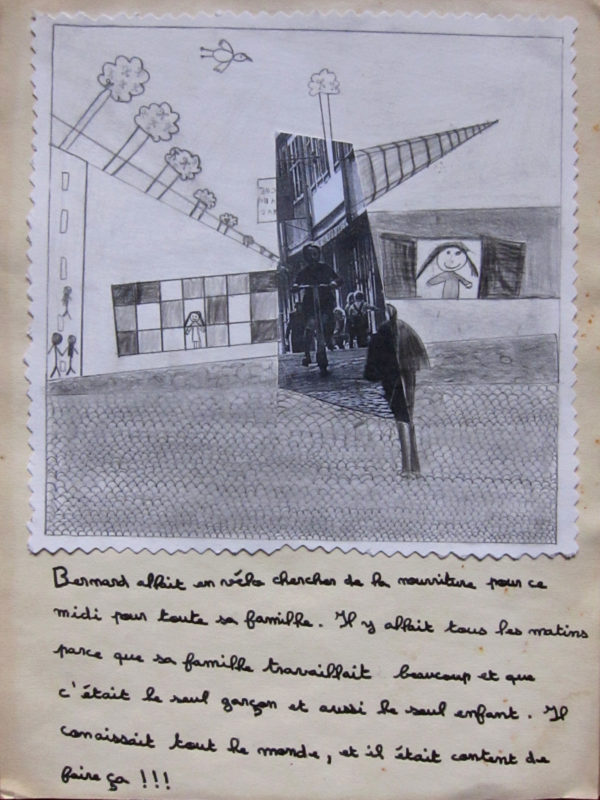 Bernard allait en vélo chercher de la nourriture pour ce
midi pour toute sa famille. Il y allait tous les matins
parce que sa famille travaillait beaucoup et que
c'était le seul garçon et aussi le seul enfant. Il
conaissait tout le monde, et il était content de
faire ça !!!